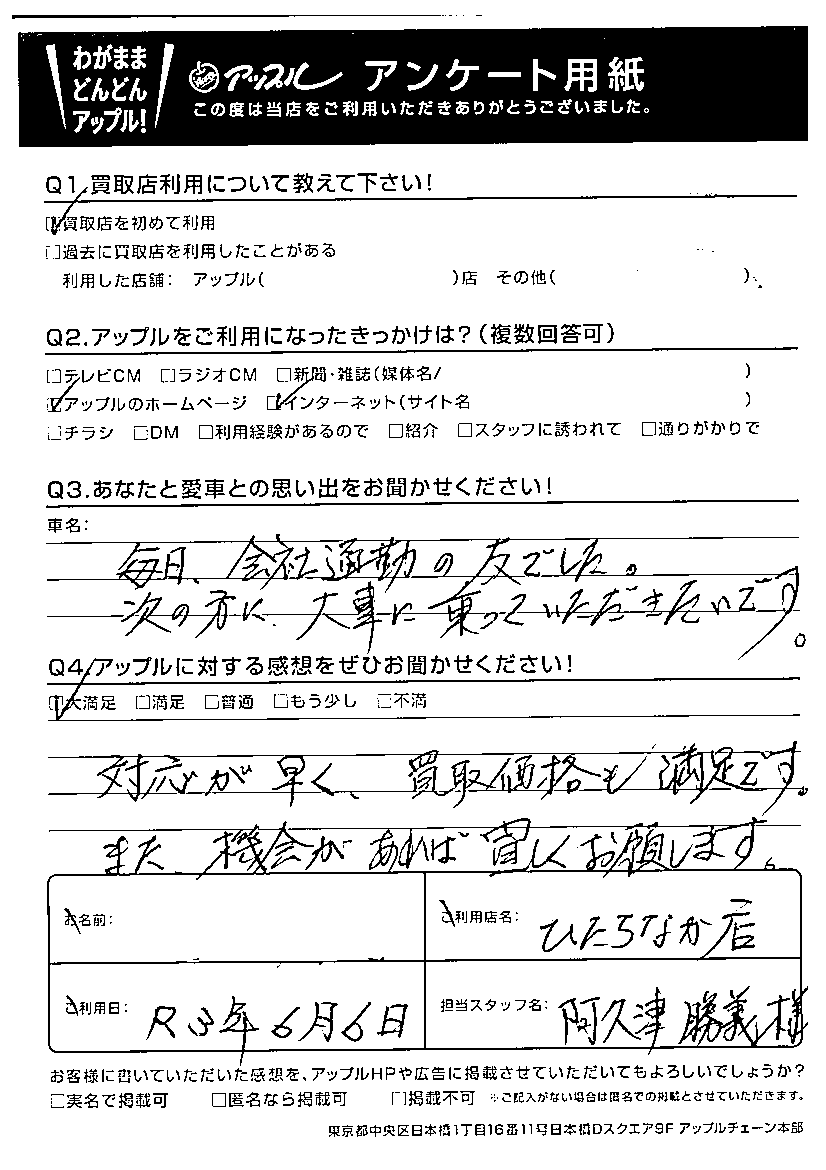 わがまま
どんどん
アップル!
アップル アンケート用紙
この度は当店をご利用いただきありがとうございました。
Q1.買取店利用について教えて下さい!
☑買取店を初めて利用
□過去に買取店を利用したことがある
利用した店舗: アップル( )店 その他( )
Q2.アップルをご利用になったきっかけは?(複数回答可)
□テレビCM □ラジオCM □新聞・雑誌(媒体名/ )
☑アップルのホームページ ☑インターネット(サイト名 )
□チラシ □DM □利用経験があるので □紹介 □スタッフに誘われて □通りがかりで
Q3.あなたと愛車との思い出をお聞かせください!
車名:
毎日、会社通勤の友でした。
次の方に、大事に乗っていただきたいです。
Q4.アップルに対する感想をぜひお聞かせください!
☑大満足 □満足 □普通 □もう少し □不満
対応が早く、買取価格も満足です。
また、機会があれば宜しくお願します。
お名前:
ご利用店名: ひたちなか店
ご利用日: R3年6月6日
担当スタッフ名: 阿久津 勝義様
お客様に書いていただいた感想を、アップルHPや広告に掲載させていただいてもよろしいでしょうか?
□実名で掲載可 □匿名なら掲載可 □掲載不可 ※ご記入がない場合は匿名での掲載とさせていただきます。
東京都中央区日本橋1丁目16番11号日本橋Dスクエア9F アップルチェーン本部